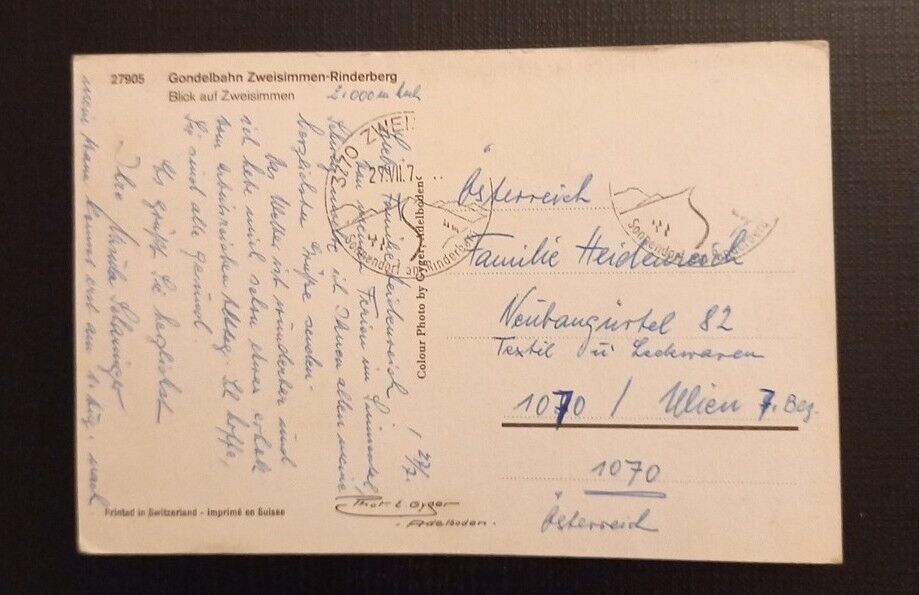 27905 Gondelbahn Zweisimmen-Rinderberg
Blick auf Zweisimmen
2.000 m hoch
27/7.
Liebe Familie Heidenreich!
meinen Ferien im Simmental,
Schweiz, möchte ich Ihnen allen meine
herzlichsten Grüße senden.
Das Wetter ist wunderbar und
ich habe mich schon etwas erholt
vom arbeitsreichen Alltag. Ich hoffe,
Sie sind alle gesund.
Es grüßt Sie herzlichst
Ihre
mein kommt erst am 1. Aug. nach
ZWEI
29.VII.7
Sonnendorf am Rinderberg
Sonnendorf
Colour Photo by Gyger, Adelboden
Österreich
Familie Heidenreich
Neubaugürtel 82
Textil u Lederwaren
1070 / Wien 7. Bez.
1070
Österreich
Printed in Switzerland - Imprimé en Suisse
Phot. E. Gyger
- Adelboden -